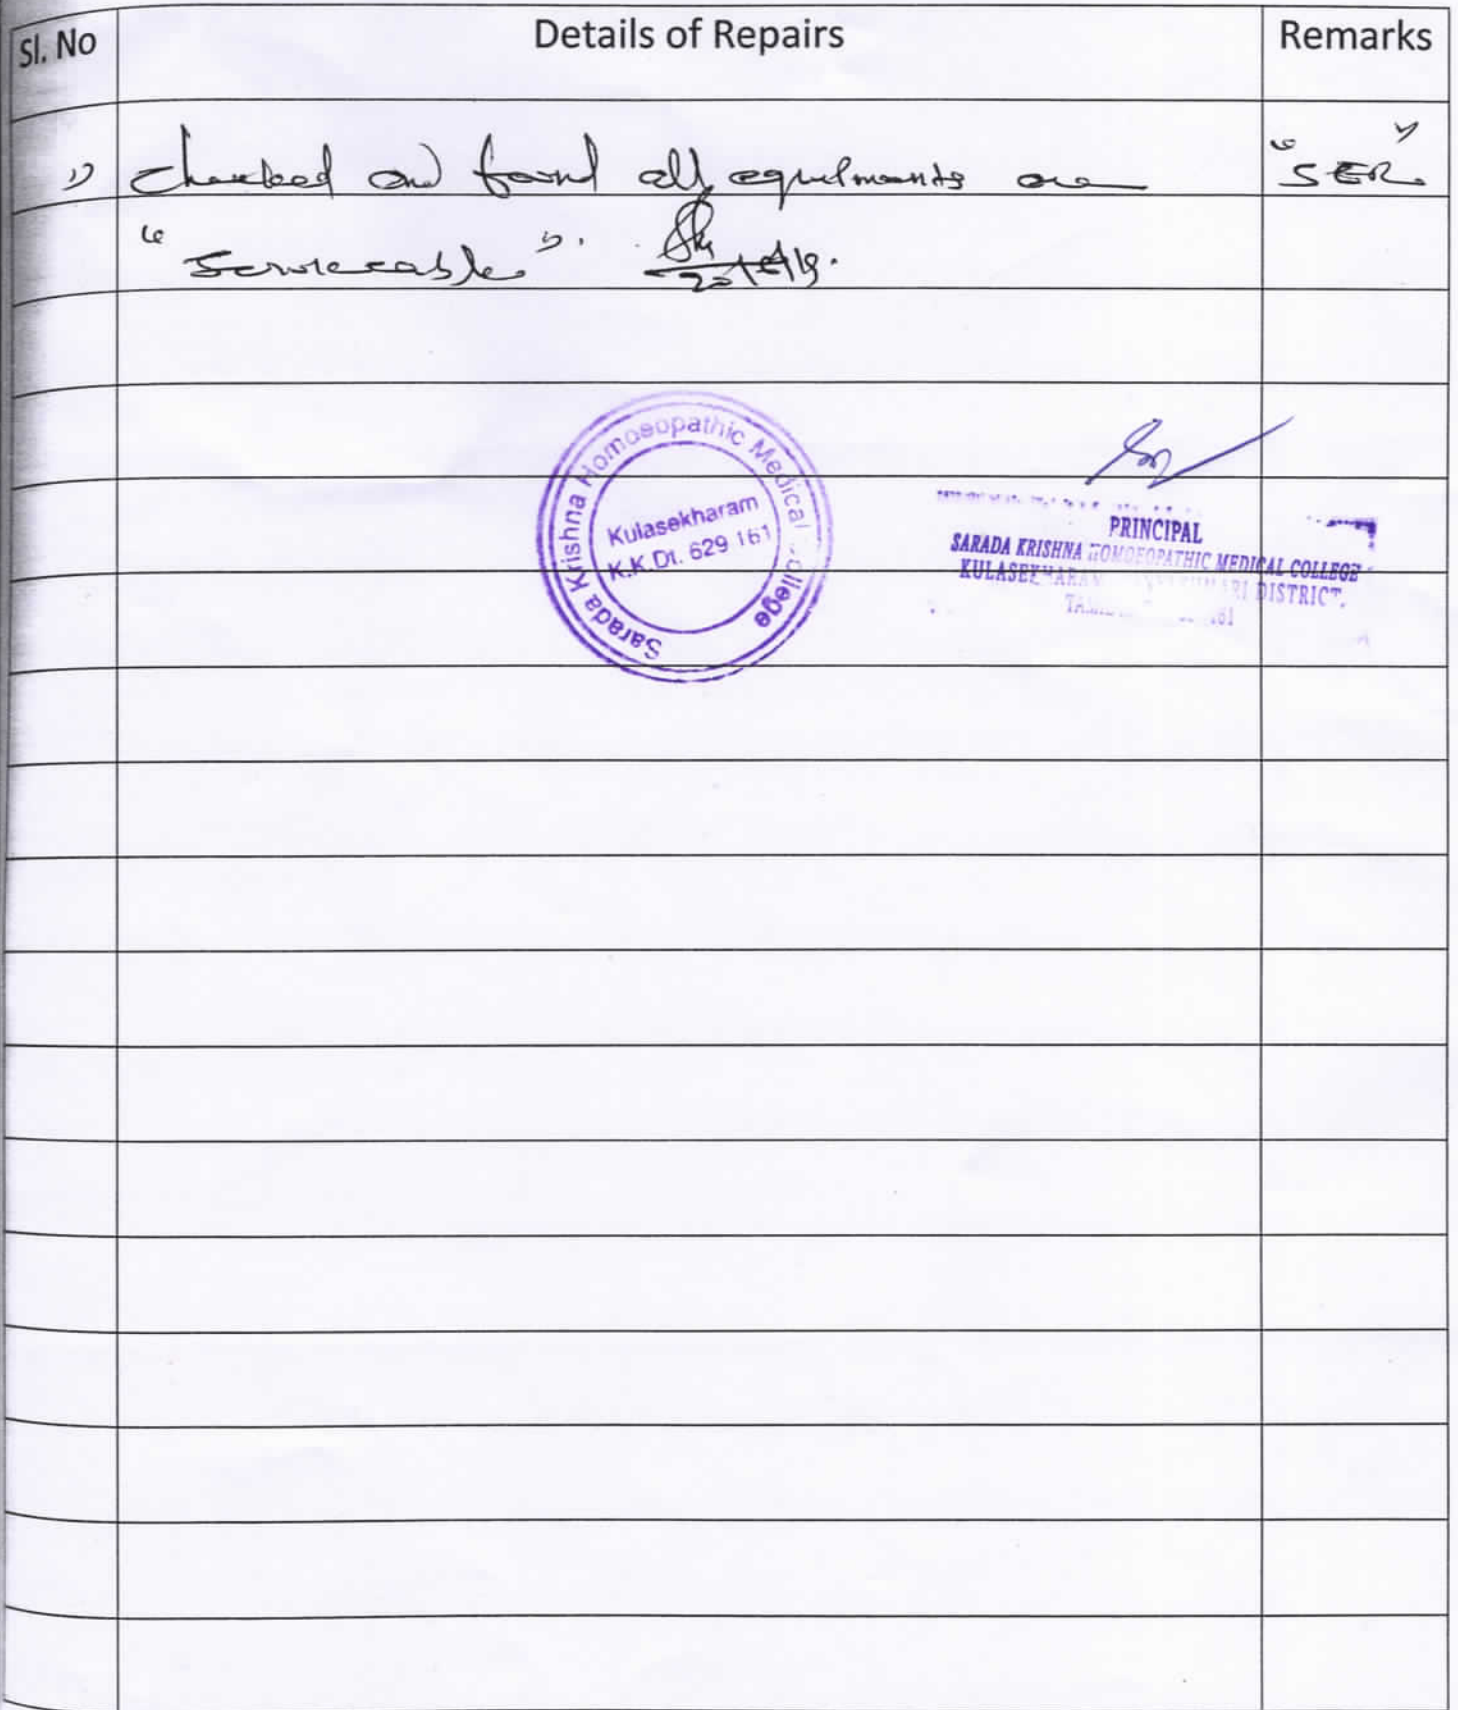 Sl. No Details of Repairs Remarks
1) Checked and found all equilments are "SER"
"Serviceable".
Sarada Krishna Homoeopathic Medical College
Kulasekharam
K.K.Dt. 629 161
PRINCIPAL
SARADA KRISHNA HOMOEOPATHIC MEDICAL COLLEGE
KULASEKHARAM DISTRICT.